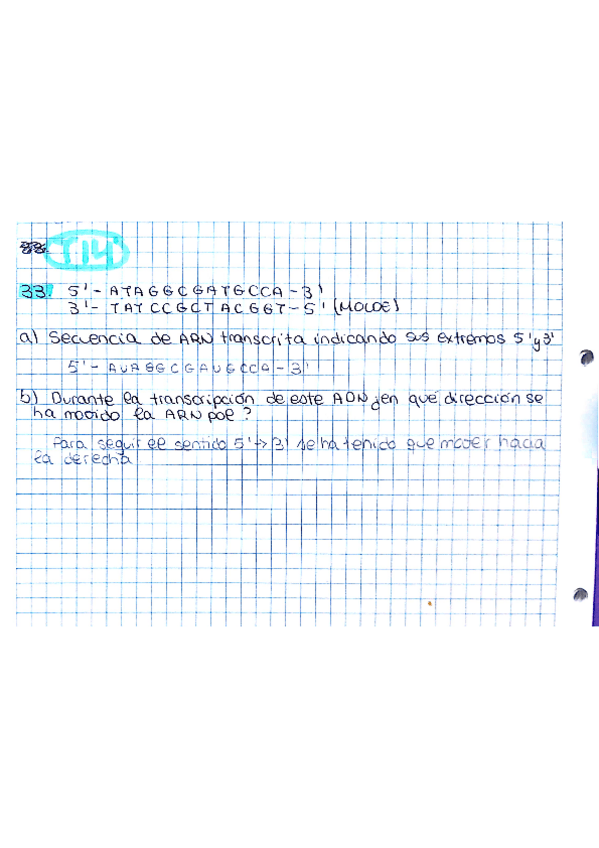 T.14
33. 5'- ATAGGCGATGCCA - 3'
3'- TATCCGCTACGGT - 5' (MOLDE)
a) Secuencia de ARN transcrita indicando sus extremos 5' y 3'
5' - AUAGGCGAUGCCA - 3'
b) Durante la transcripción de este ADN ¿en qué dirección se
ha movido la ARN pol ?
Para seguir el sentido 5' → 3' se ha tenido que mover hacia
la derecha